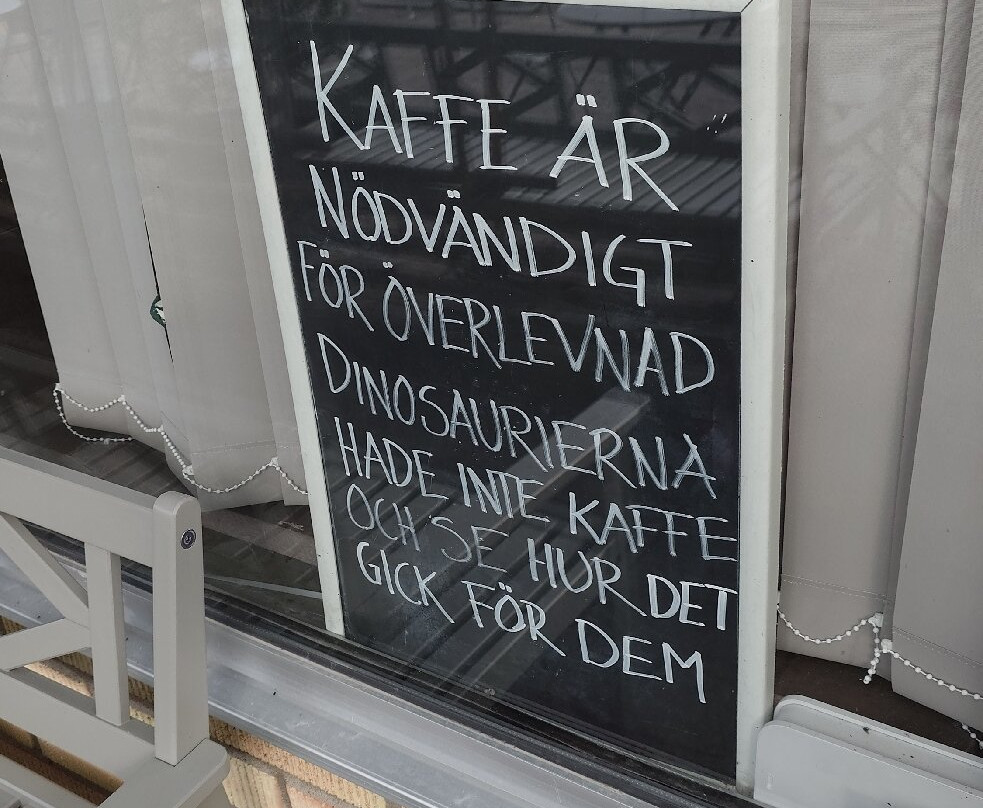 KAFFE ÄR
NÖDVÄNDIGT
FÖR ÖVERLEVNAD
DINOSAURIERNA
HADE INTE KAFFE
OCH SE HUR DET
GICK FÖR DEM